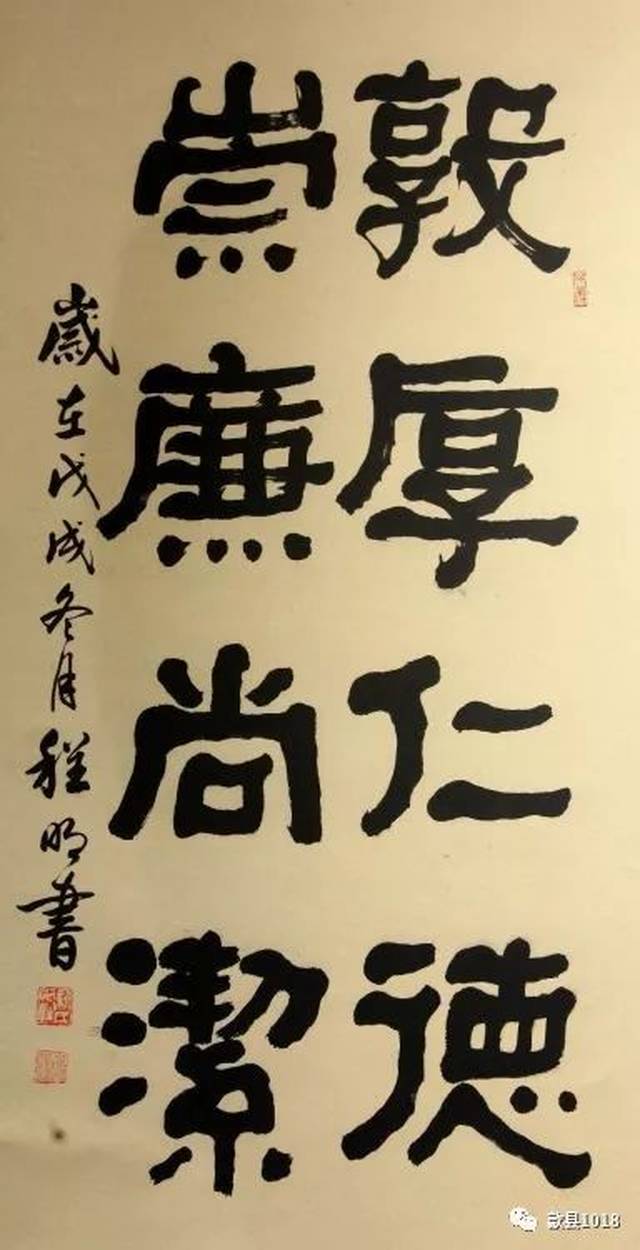 敦厚仁德
崇廉尚潔
歲在戊戌冬月程明書
歙县1018